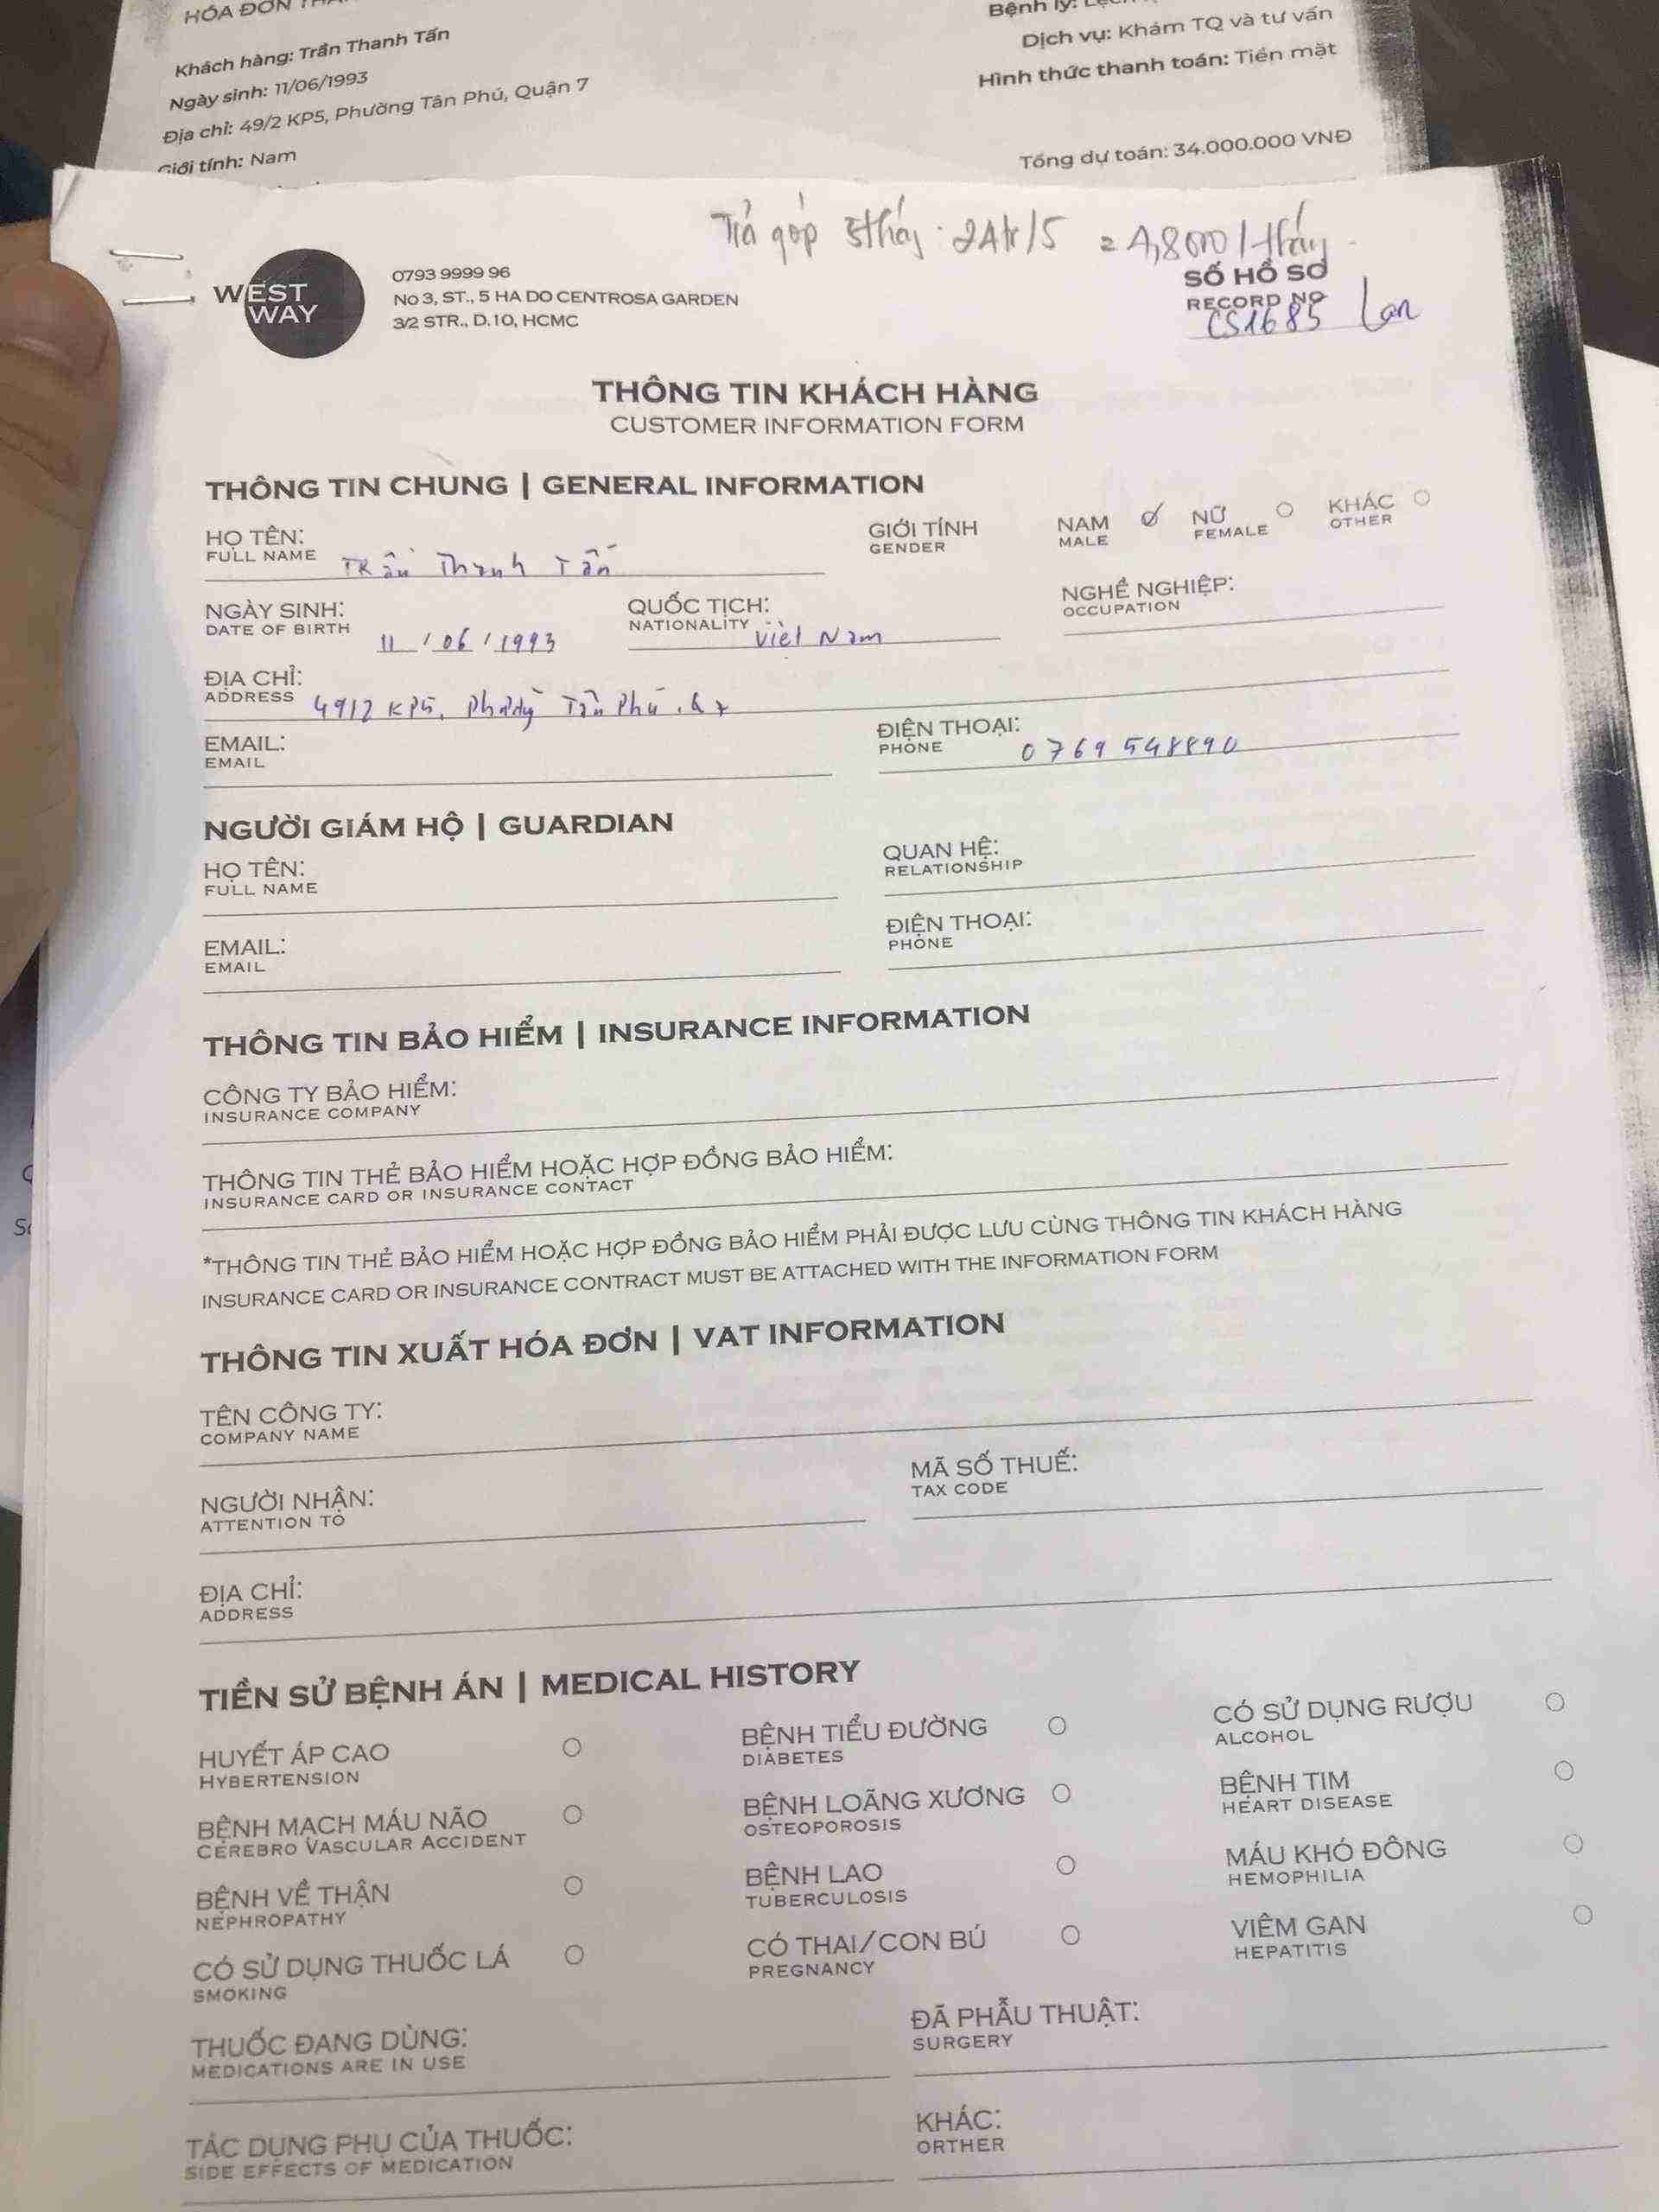 HÓA ĐƠN
Khách hàng: Trần Thanh Tấn
Ngày sinh: 11/06/1993
Địa chỉ: 49/2 KP5, Phường Tân Phú, Quận 7
Giới tính: Nam
Bệnh lý:
Dịch vụ: Khám TQ và tư vấn
Hình thức thanh toán: Tiền mặt
Tổng dự toán: 34.000.000 VNĐ
Trả góp 5 tháng. 24tr/5 = 4,800/tháng
WEST WAY
0793 9999 96
No 3, ST., 5 HA DO CENTROSA GARDEN
3/2 STR., D.10, HCMC
SỐ HỒ SƠ
RECORD NO
CS1685 Lan
THÔNG TIN KHÁCH HÀNG
CUSTOMER INFORMATION FORM
THÔNG TIN CHUNG | GENERAL INFORMATION
HỌ TÊN: Trần Thanh Tấn
FULL NAME
GIỚI TÍNH NAM NỮ KHÁC
GENDER MALE FEMALE OTHER
NGÀY SINH: 11/06/1993
DATE OF BIRTH
QUỐC TỊCH: Việt Nam
NATIONALITY
NGHỀ NGHIỆP:
OCCUPATION
ĐỊA CHỈ:
ADDRESS 49/2 KP5, Phường Tân Phú, Q7
EMAIL:
EMAIL
ĐIỆN THOẠI:
PHONE 0769548890
NGƯỜI GIÁM HỘ | GUARDIAN
HỌ TÊN:
FULL NAME
QUAN HỆ:
RELATIONSHIP
EMAIL:
EMAIL
ĐIỆN THOẠI:
PHONE
THÔNG TIN BẢO HIỂM | INSURANCE INFORMATION
CÔNG TY BẢO HIỂM:
INSURANCE COMPANY
THÔNG TIN THẺ BẢO HIỂM HOẶC HỢP ĐỒNG BẢO HIỂM:
INSURANCE CARD OR INSURANCE CONTACT
*THÔNG TIN THẺ BẢO HIỂM HOẶC HỢP ĐỒNG BẢO HIỂM PHẢI ĐƯỢC LƯU CÙNG THÔNG TIN KHÁCH HÀNG
INSURANCE CARD OR INSURANCE CONTRACT MUST BE ATTACHED WITH THE INFORMATION FORM
THÔNG TIN XUẤT HÓA ĐƠN | VAT INFORMATION
TÊN CÔNG TY:
COMPANY NAME
NGƯỜI NHẬN:
ATTENTION TO
MÃ SỐ THUẾ:
TAX CODE
ĐỊA CHỈ:
ADDRESS
TIỀN SỬ BỆNH ÁN | MEDICAL HISTORY
HUYẾT ÁP CAO
HYBERTENSION
BỆNH TIỂU ĐƯỜNG
DIABETES
CÓ SỬ DỤNG RƯỢU
ALCOHOL
BỆNH MẠCH MÁU NÃO
CEREBRO VASCULAR ACCIDENT
BỆNH LOÃNG XƯƠNG
OSTEOPOROSIS
BỆNH TIM
HEART DISEASE
BỆNH VỀ THẬN
NEPHROPATHY
BỆNH LAO
TUBERCULOSIS
MÁU KHÓ ĐÔNG
HEMOPHILIA
CÓ SỬ DỤNG THUỐC LÁ
SMOKING
CÓ THAI/CON BÚ
PREGNANCY
VIÊM GAN
HEPATITIS
THUỐC ĐANG DÙNG:
MEDICATIONS ARE IN USE
ĐÃ PHẪU THUẬT:
SURGERY
TÁC DỤNG PHỤ CỦA THUỐC:
SIDE EFFECTS OF MEDICATION
KHÁC:
ORTHER